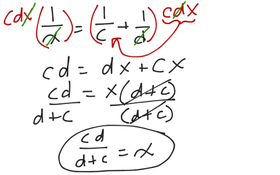 cdx(1/x) = (1/c + 1/d) cdx
cd = dx + cx
cd/d+c = x(d+c)/(d+c)
cd/d+c = x